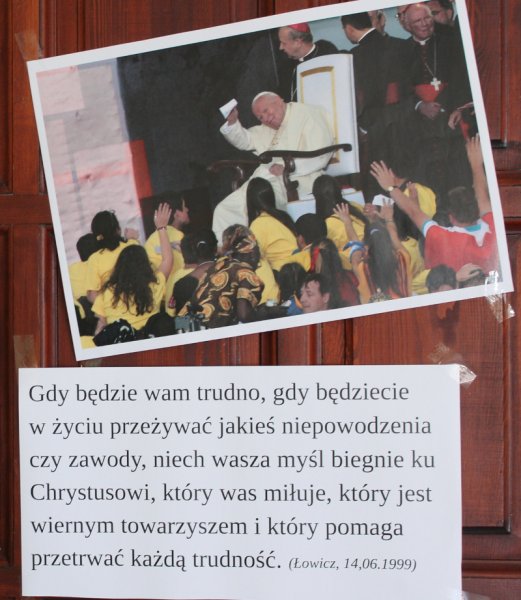 Gdy będzie wam trudno, gdy będziecie
w życiu przeżywać jakieś niepowodzenia
czy zawody, niech wasza myśl biegnie ku
Chrystusowi, który was miłuje, który jest
wiernym towarzyszem i który pomaga
przetrwać każdą trudność. (Łowicz, 14,06.1999)